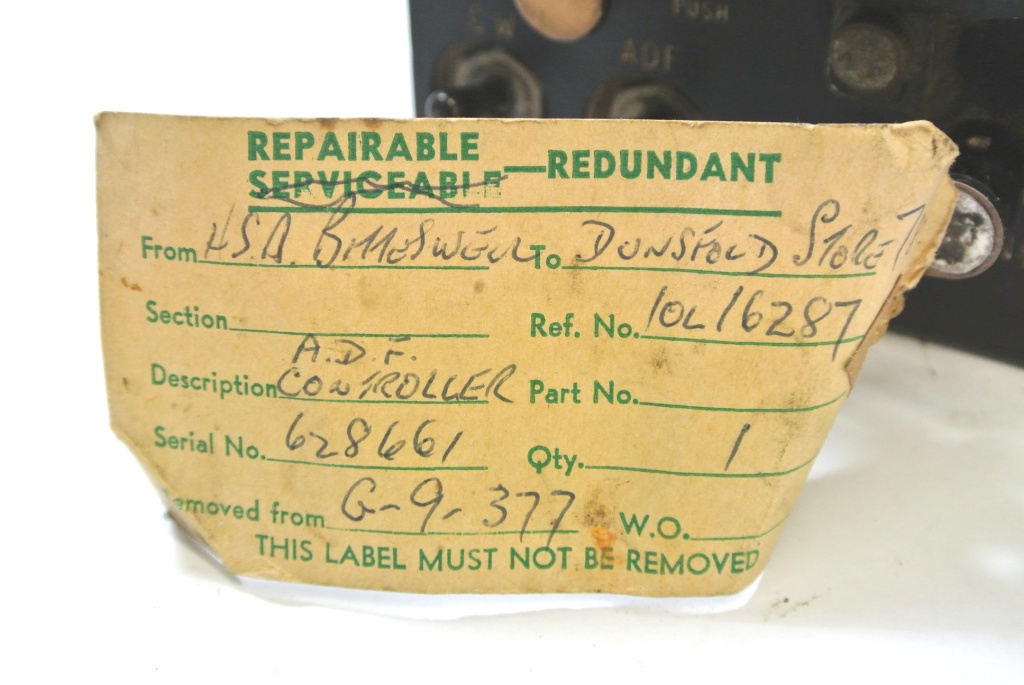 CW
PUSH
ADF
REPAIRABLE
SERVICEABLE —REDUNDANT
From H.S.A. BITTESWELL To DUNSFOLD STORE
Section Ref. No. 10L16287
A.D.F.
Description CONTROLLER Part No.
Serial No. 628661 Qty. 1
emoved from G-9-377 W.O.
THIS LABEL MUST NOT BE REMOVED